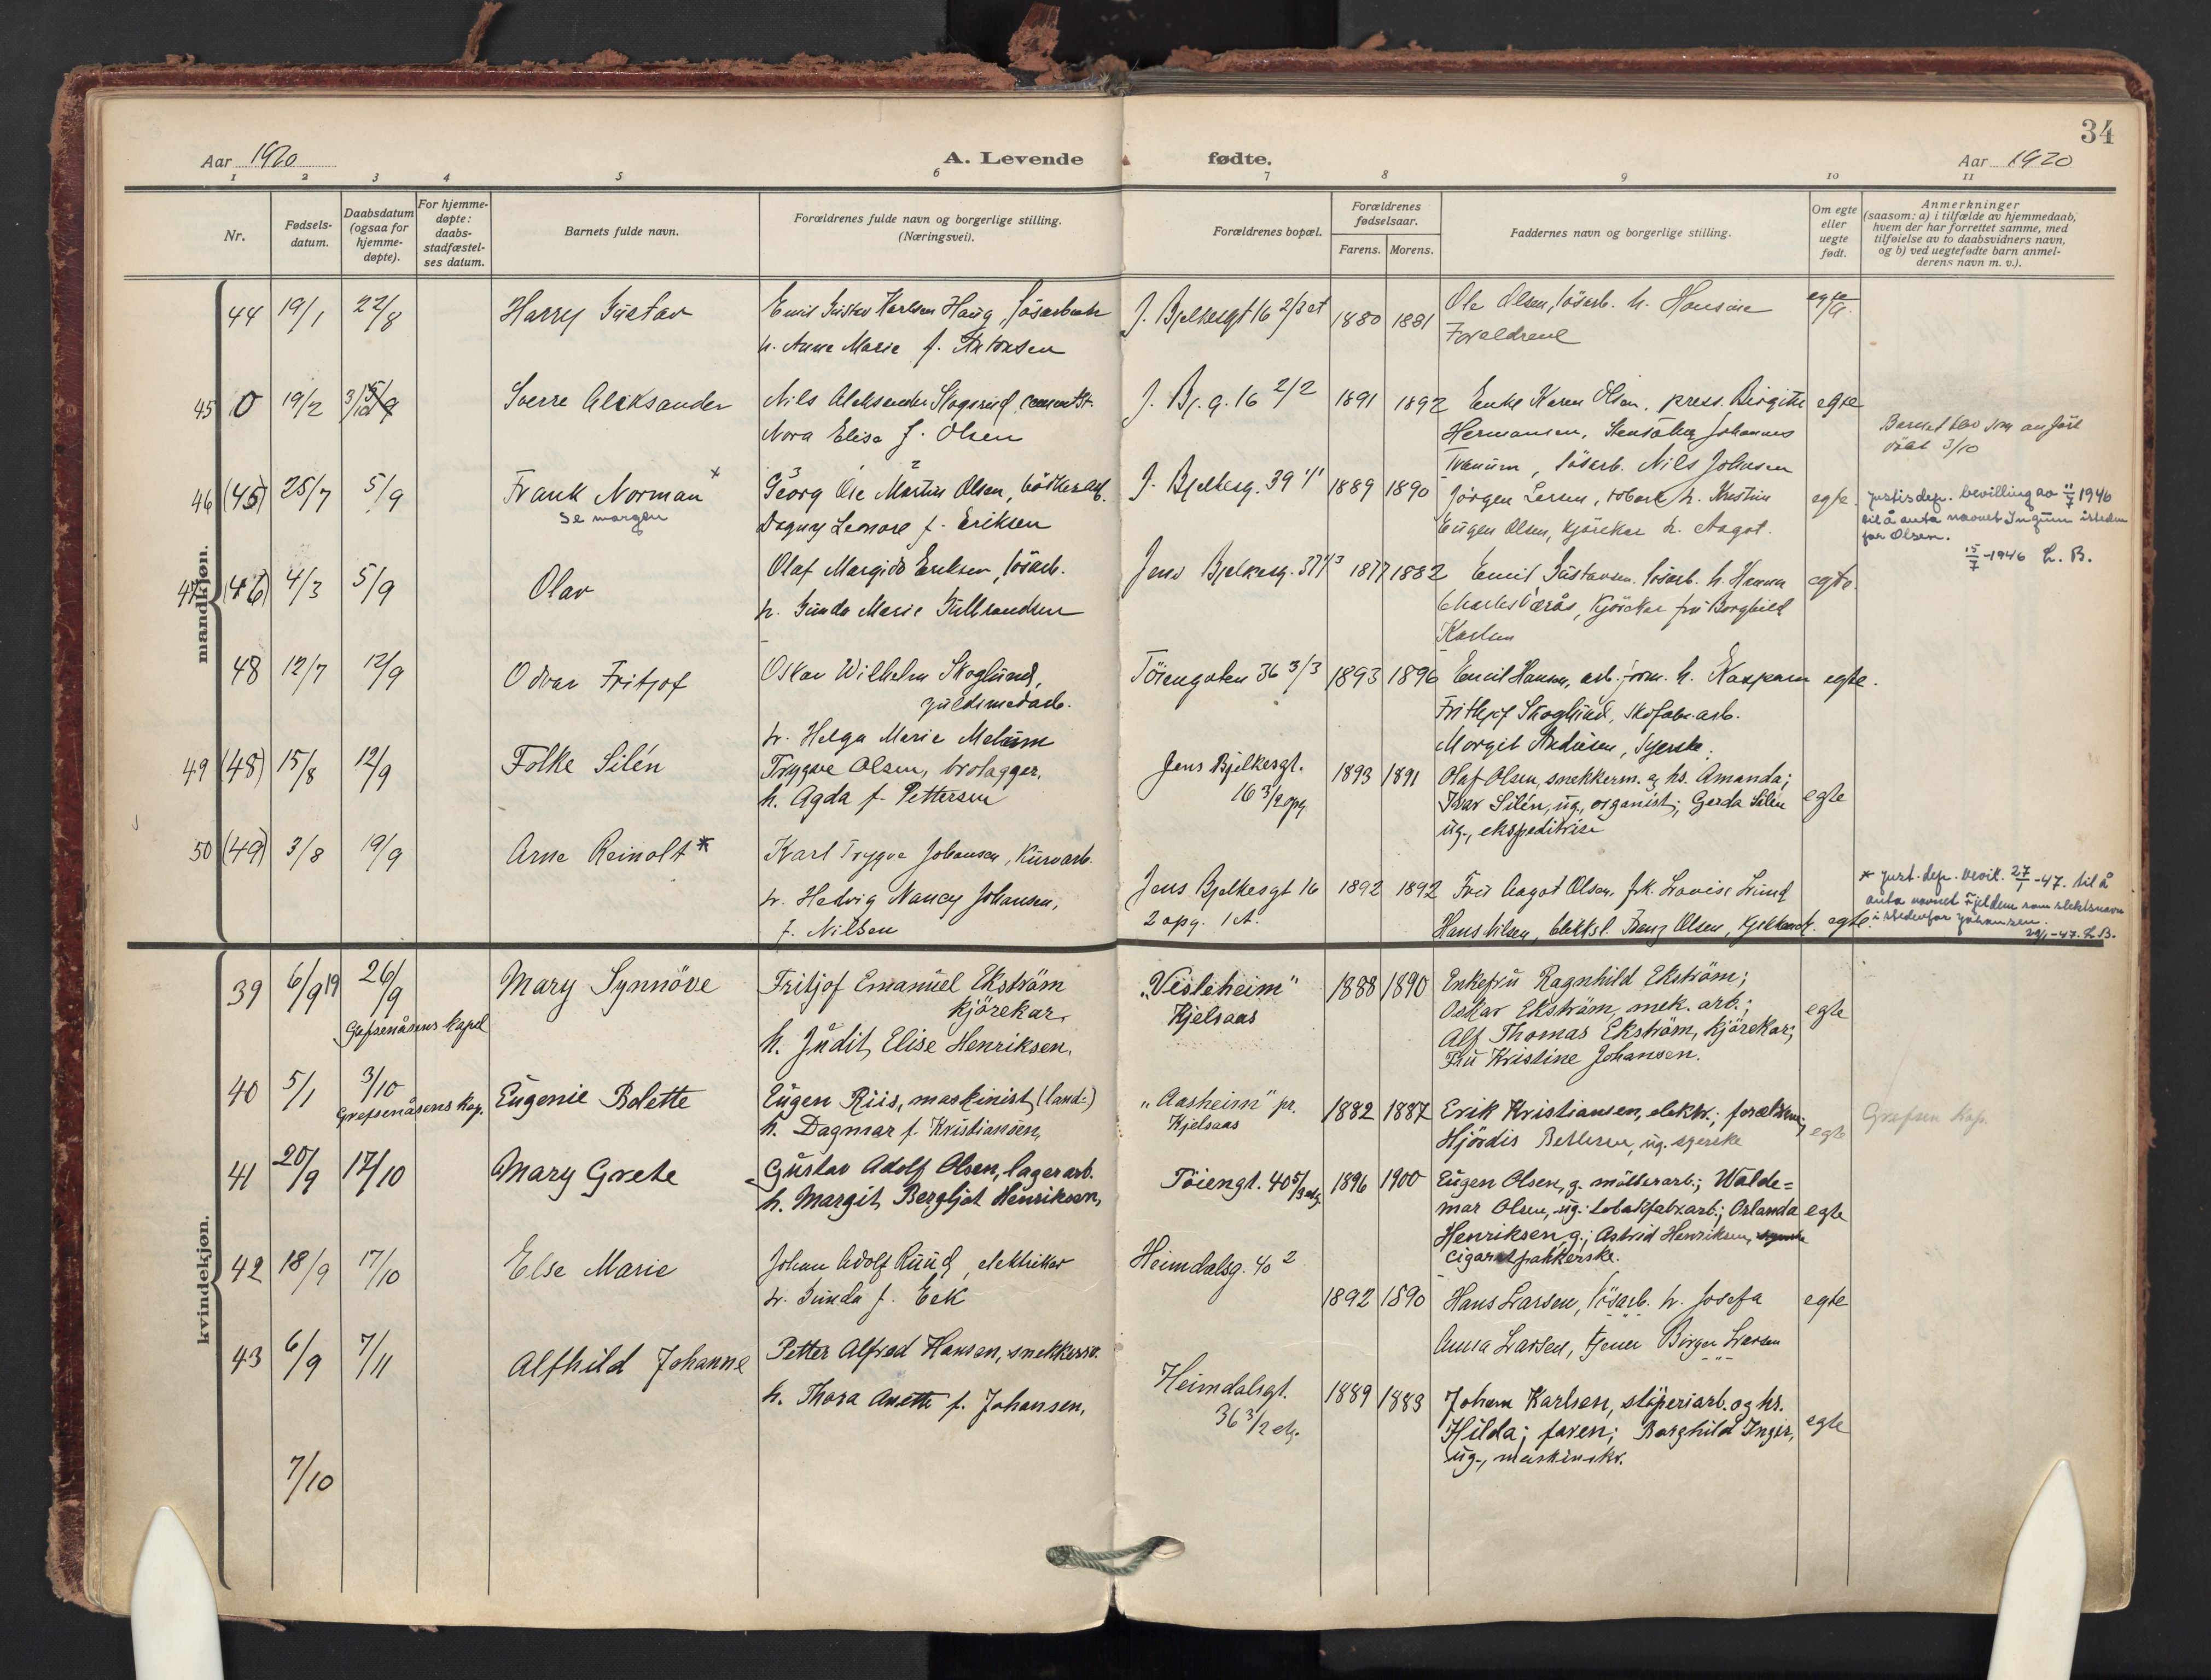 34
Aar 1920
A. Levende
fødte.
Aar 1920
1 2 3 4 5 6 7 8 9 10 11
Nr.
Fødsels-
datum.
Daabsdatum
(ogsaa for
hjemme-
døpte).
For hjemme-
døpte:
daabs-
stadfæstel-
ses datum.
Barnets fulde navn.
Forældrenes fulde navn og borgerlige stilling.
(Næringsvei).
Forældrenes bopæl.
Forældrenes
fødselsaar.
Farens. Morens.
Faddernes navn og borgerlige stilling.
Om egte
eller
uegte
født.
Anmerkninger
(saasom: a) i tilfælde av hjemmedaab,
hvem der har forrettet samme, med
tilføielse av to daabsvidners navn,
og b) ved uegtefødte barn anmel-
derens navn m. v.).
mandkjøn.
44 19/1 22/8 Harry Gustav
Emil Gustav Karlsen Haug, løsarbeider
h. Anne Marie f. Antonsen
J. Bjelkesgt 16 2/3 et 1880 1881
Ole Olsen, løsarb. h. Hansine
Foreldrene
egte
45 0 19/2 3/10 Sverre Aleksander
Nils Aleksander Skogsrud, cementst.
Nora Elise f. Olsen
J. Bj. g. 16 2/2 1891 1892
Enke Karen Olsen, press. Birgitte
Hermansen, Johannes
løsarb. Nils Johnsen
egte
Barnet blev som anført
døbt 3/10
46 (45) 25/7 5/9 Frank Norman x
se margen
Georg Ole Martin Olsen, bøtkerarb.
Dagny Leonore f. Eriksen
J. Bjelkesg. 39 1/1 1889 1890
Jørgen Larsen, h. Kristine
Eugen Olsen, kjørekar h. Aagot.
egte
Justisdep. bevilling av 11/7 1946
til å anta navnet Ingum isteden
for Olsen.
15/7-1946 L. B.
47 (46) 4/3 5/9 Olav
Olaf Margido Eriksen, løsarb.
h. Gunda Marie Gulbrandsen
Jens Bjelkesg. 37 1/3 1877 1882
Emil Gustavsen, løsarb. h. Hanna
Charles Værås, kjørekar fru Borghild
Karlsen
egte.
48 12/7 12/9 Odvar Fritjof
Oskar Wilhelm Skoglund,
guldsmedarb.
h. Helga Marie Melum
Töiengaten 36 3/3 1893 1896
Emil Hansen, arb. form. h. Kaspara
Frithjof Skoglund, skofabr. arb.
Margit Andresen, syerske.
egte.
49 (48) 15/8 12/9 Folke Silén
Trygve Olsen, brolægger,
h. Agda f. Pettersen
Jens Bjelkesgt.
16 3/2 opg 1893 1891
Olaf Olsen, snekkerm. og hs. Amanda;
Ivar Silén, ug., organist; Gerda Silén
ug., ekspeditrise
egte
50 (49) 3/8 19/9 Arne Reinolt *
Karl Trygve Johansen, kurvarb.
h. Hedvig Nancy Johansen,
f. Nilsen
Jens Bjelkesgt 16
2 opg. 1 et. 1892 1892
Fru Aagot Olsen, frk. Lovise Lund
Hans Nilsen, Benj Olsen,
egte.
* Just. dep. bevil. 27/1-47. til å
anta navnet Fjeldem som slektsnavn
istedenfor Johansen.
29/1-47. L. B.
kvindekjøn.
39 6/9 19 26/9 Mary Synnöve
Grefsenåsens kapel
Fritjof Emanuel Ekström
kjörekar,
h. Judit, Elise Henriksen,
"Visleheim"
Kjelsaas 1888 1890
Enkefru Ragnhild Ekström;
Oskar Ekström, mek. arb.;
Alf Thomas Ekström, kjörekar;
Fru Kristine Johansen.
egte
40 5/1 3/10 Eugenie Belette
Grefsenåsens kap.
Eugen Riis, maskinist (land-)
h. Dagmar f. Kristiansen,
"Aasheim" pr.
Kjelsaas 1882 1887
Erik Kristiansen, elektr.; forældrene;
Hjördis Pettersen, ug. syerske
egte
Grefsen Kap.
41 20/9 17/10 Mary Grete
Gustav Adolf Olsen, lagerarb.
h. Margit Bergljot Henriksen,
Töiengt. 40 5/3 etg. 1896 1900
Eugen Olsen, g. möllerarb.; Walde=
mar Olsen, ug. tobakfabr.arb.; Orlanda
Henriksen, g.; Astrid Henriksen, syerske
cigaretpakkerske.
egte
42 18/9 17/10 Else Marie
Johan Adolf Ruud, elektriker
h. Gunda f. Eek
Heimdalsg. 40 2
1892 1890
Hans Larsen, løsarb. h. Josefa
Anna Larsen, tjener Birger Larsen
egte
43 6/9 7/11 Alfhild Johanne
Petter Alfred Hansen, snekkersv.
h. Thora Anette f. Johansen,
Heimdalsgt.
36 3/2 etg. 1889 1883
Johan Karlsen, støperiarb. og hs.
Hilda; faren; Borghild Inger,
ug., maskinskr.
egte
7/10